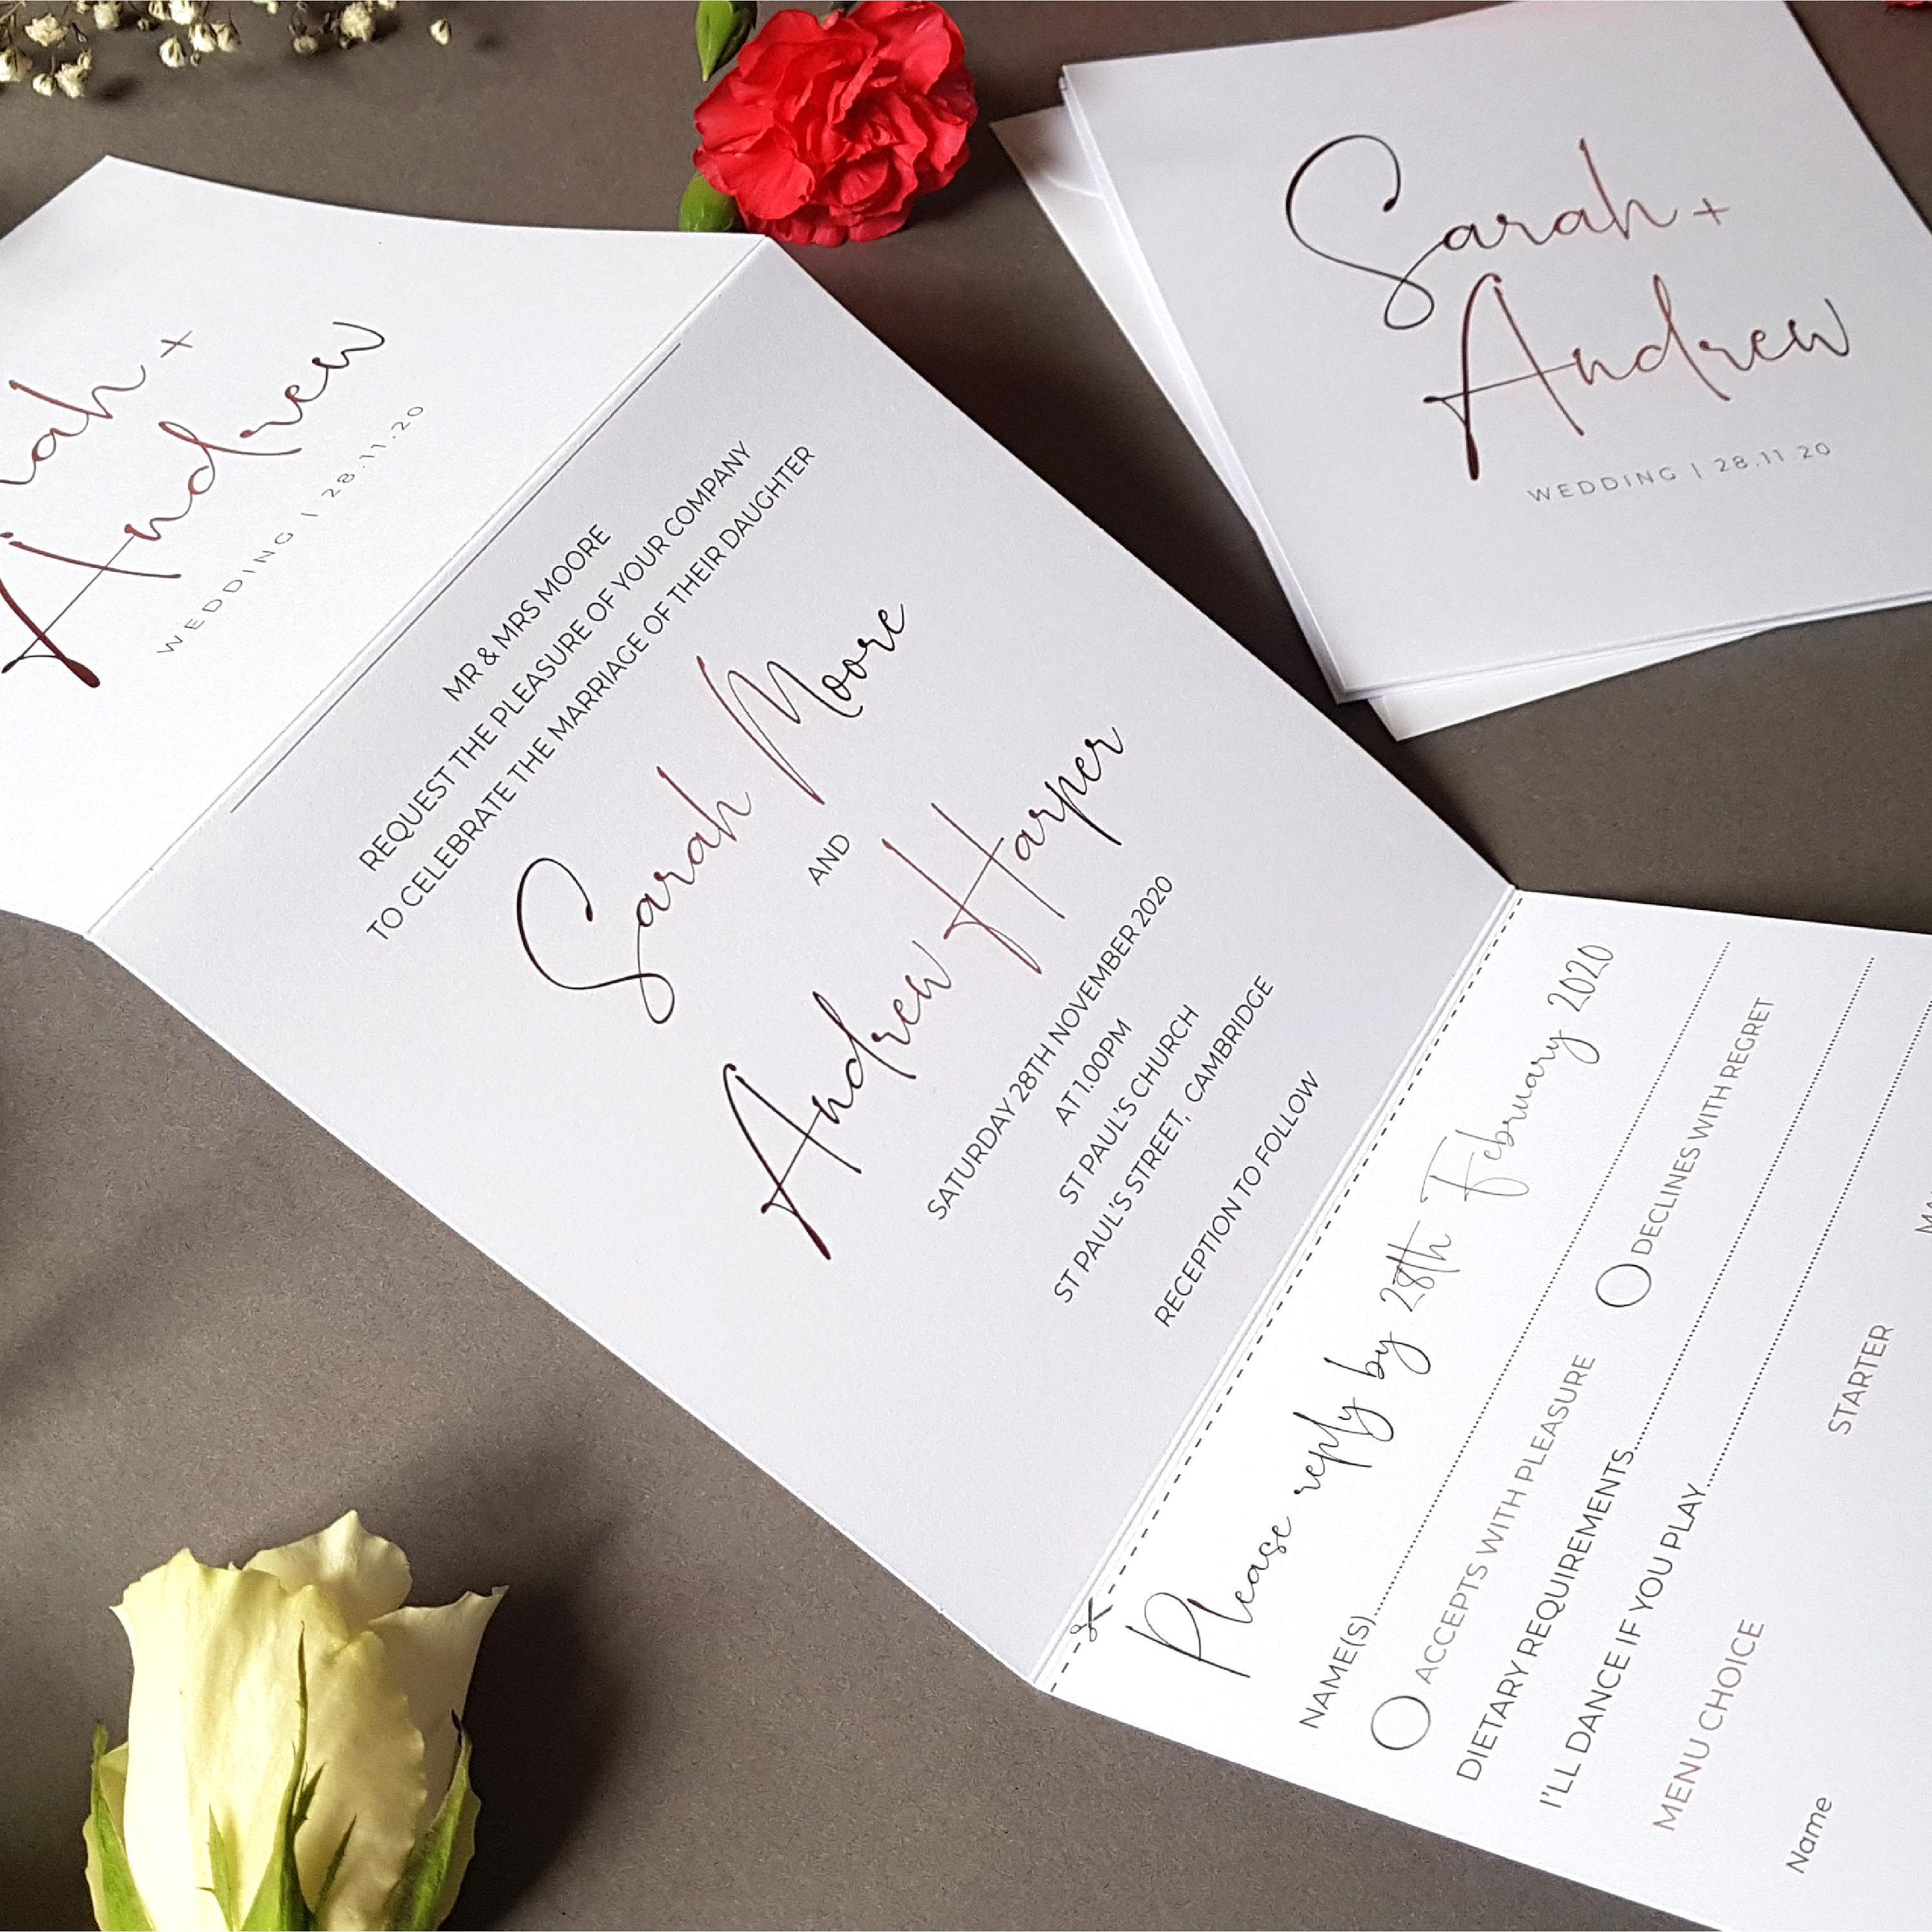 +
Andrew
WEDDING | 28.11.20
MR & MRS MOORE
REQUEST THE PLEASURE OF YOUR COMPANY
TO CELEBRATE THE MARRIAGE OF THEIR DAUGHTER
Sarah Moore
AND
Andrew Harper
SATURDAY 28TH NOVEMBER 2020
AT 1.00PM
ST PAUL'S CHURCH
ST PAUL'S STREET, CAMBRIDGE
RECEPTION TO FOLLOW
Sarah +
Andrew
WEDDING | 28.11.20
Please reply by 28th February 2020
NAME(S)
ACCEPTS WITH PLEASURE DECLINES WITH REGRET
DIETARY REQUIREMENTS
I'LL DANCE IF YOU PLAY
MENU CHOICE
Name STARTER